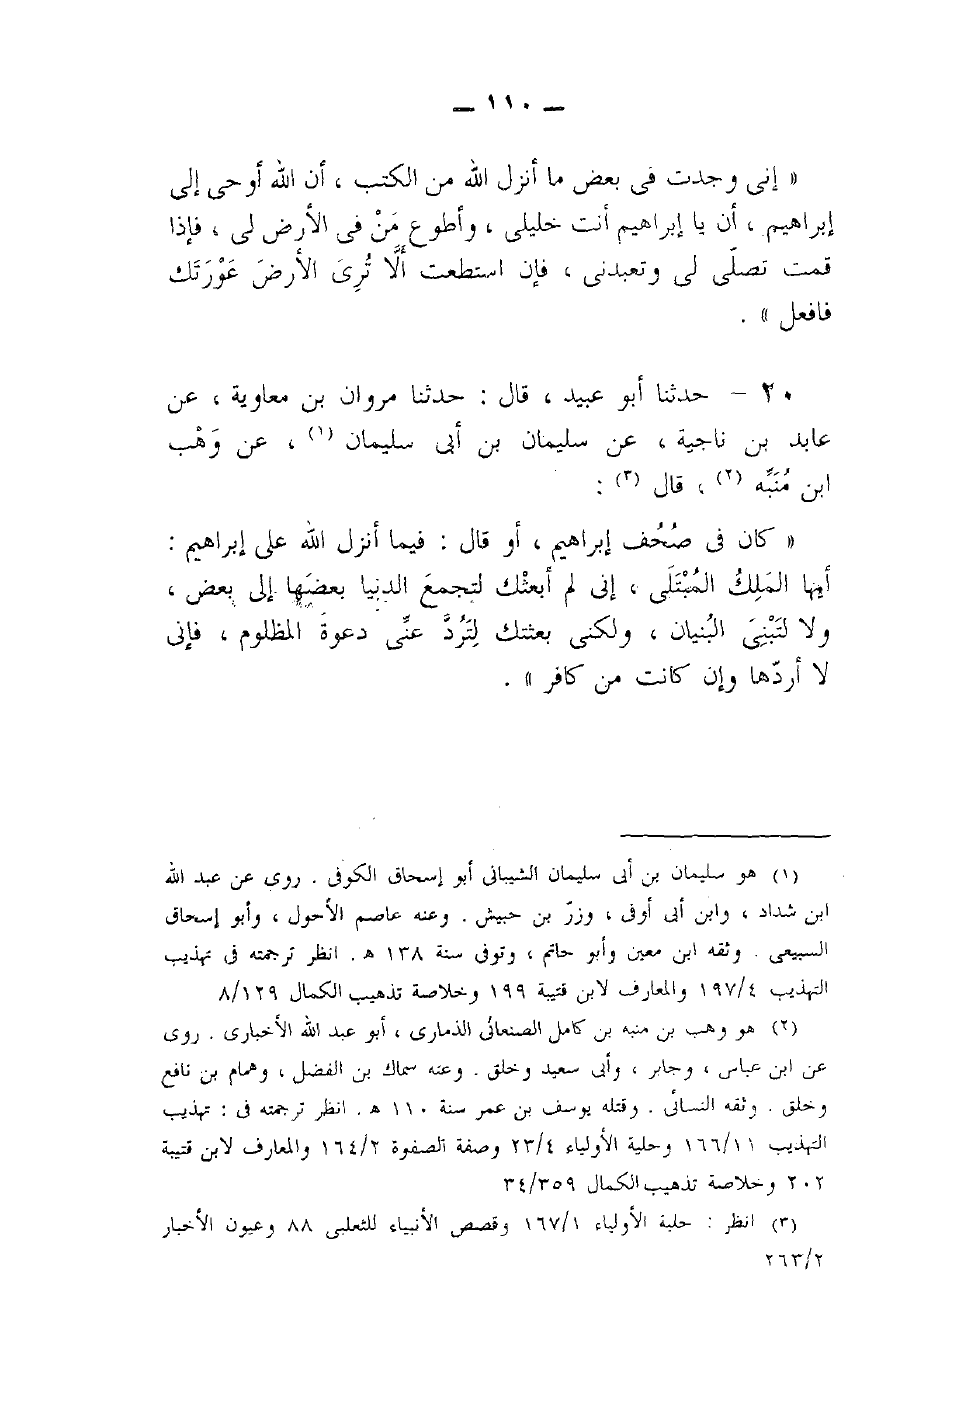 — ١١٠ —
« إنى وجدت فى بعض ما أنزل الله من الكتب ، أن الله أوحى إلى
إبراهيم ، أن يا إبراهيم أنت خليلى ، وأطوع مَنْ فى الأرض لى ، فإذا
قمت تصلّى لى وتعبدنى ، فإن استطعت ألَّا تُرِىَ الأرضَ عَوْرَتَك
فافعل » .
٢٠ – حدثنا أبو عبيد ، قال : حدثنا مروان بن معاوية ، عن
عابد بن ناجية ، عن سليمان بن أبى سليمان (١) ، عن وَهْب
ابن مُنَبِّه (٢) ، قال (٣) :
« كان فى صُحُف إبراهيم ، أو قال : فيما أنزل الله على إبراهيم :
أيها المَلِكُ المُبْتَلَى ، إنى لم أبعثْك لتجمعَ الدنيا بعضَها إلى بعض ،
ولا لتَبْنِىَ البُنيان ، ولكنى بعثتك لِتَرُدَّ عنِّى دعوةَ المظلوم ، فإنى
لا أردّها وإن كانت من كافر » .
(١) هو سليمان بن أبى سليمان الشيبانى أبو إسحاق الكوفى . روى عن عبد الله
ابن شداد ، وابن أبى أوفى ، وزرّ بن حبيش . وعنه عاصم الأحول ، وأبو إسحاق
السبيعى . وثقه ابن معين وأبو حاتم ، وتوفى سنة ١٣٨ هـ . انظر ترجمته فى تهذيب
التهذيب ١٩٧/٤ والمعارف لابن قتيبة ١٩٩ وخلاصة تذهيب الكمال ٨/١٢٩
(٢) هو وهب بن منبه بن كامل الصنعانى الذمارى ، أبو عبد الله الأخبارى . روى
عن ابن عباس ، وجابر ، وأبى سعيد وخلق . وعنه سماك بن الفضل ، وهمام بن نافع
وخلق . وثقه النسائى . وقتله يوسف بن عمر سنة ١١٠ هـ . انظر ترجمته فى : تهذيب
التهذيب ١٦٦/١١ وحلية الأولياء ٢٣/٤ وصفة الصفوة ١٦٤/٢ والمعارف لابن قتيبة
٢٠٢ وخلاصة تذهيب الكمال ٣٤/٣٥٩
(٣) انظر : حلية الأولياء ١٦٧/١ وقصص الأنبياء للثعلبى ٨٨ وعيون الأخبار
٢٦٣/٢